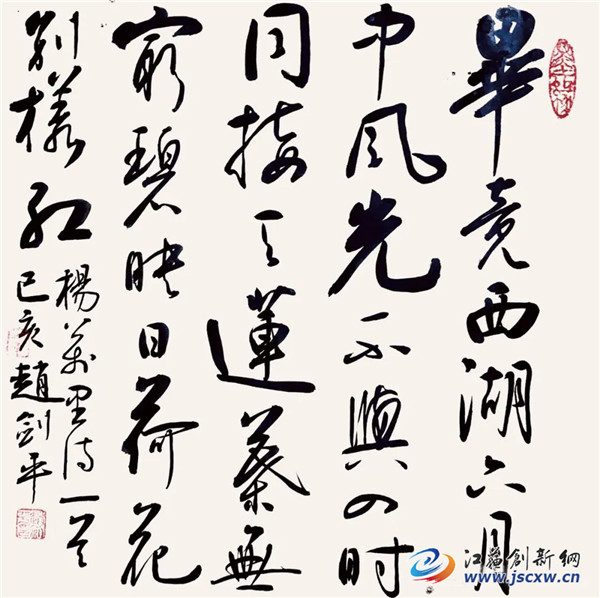 畢竟西湖六月
中風光不與四时
同接天蓮葉無
窮碧映日荷花
别樣红
楊萬里诗一首
己亥趙劍平
江蘇創新網
www.jscxw.cn